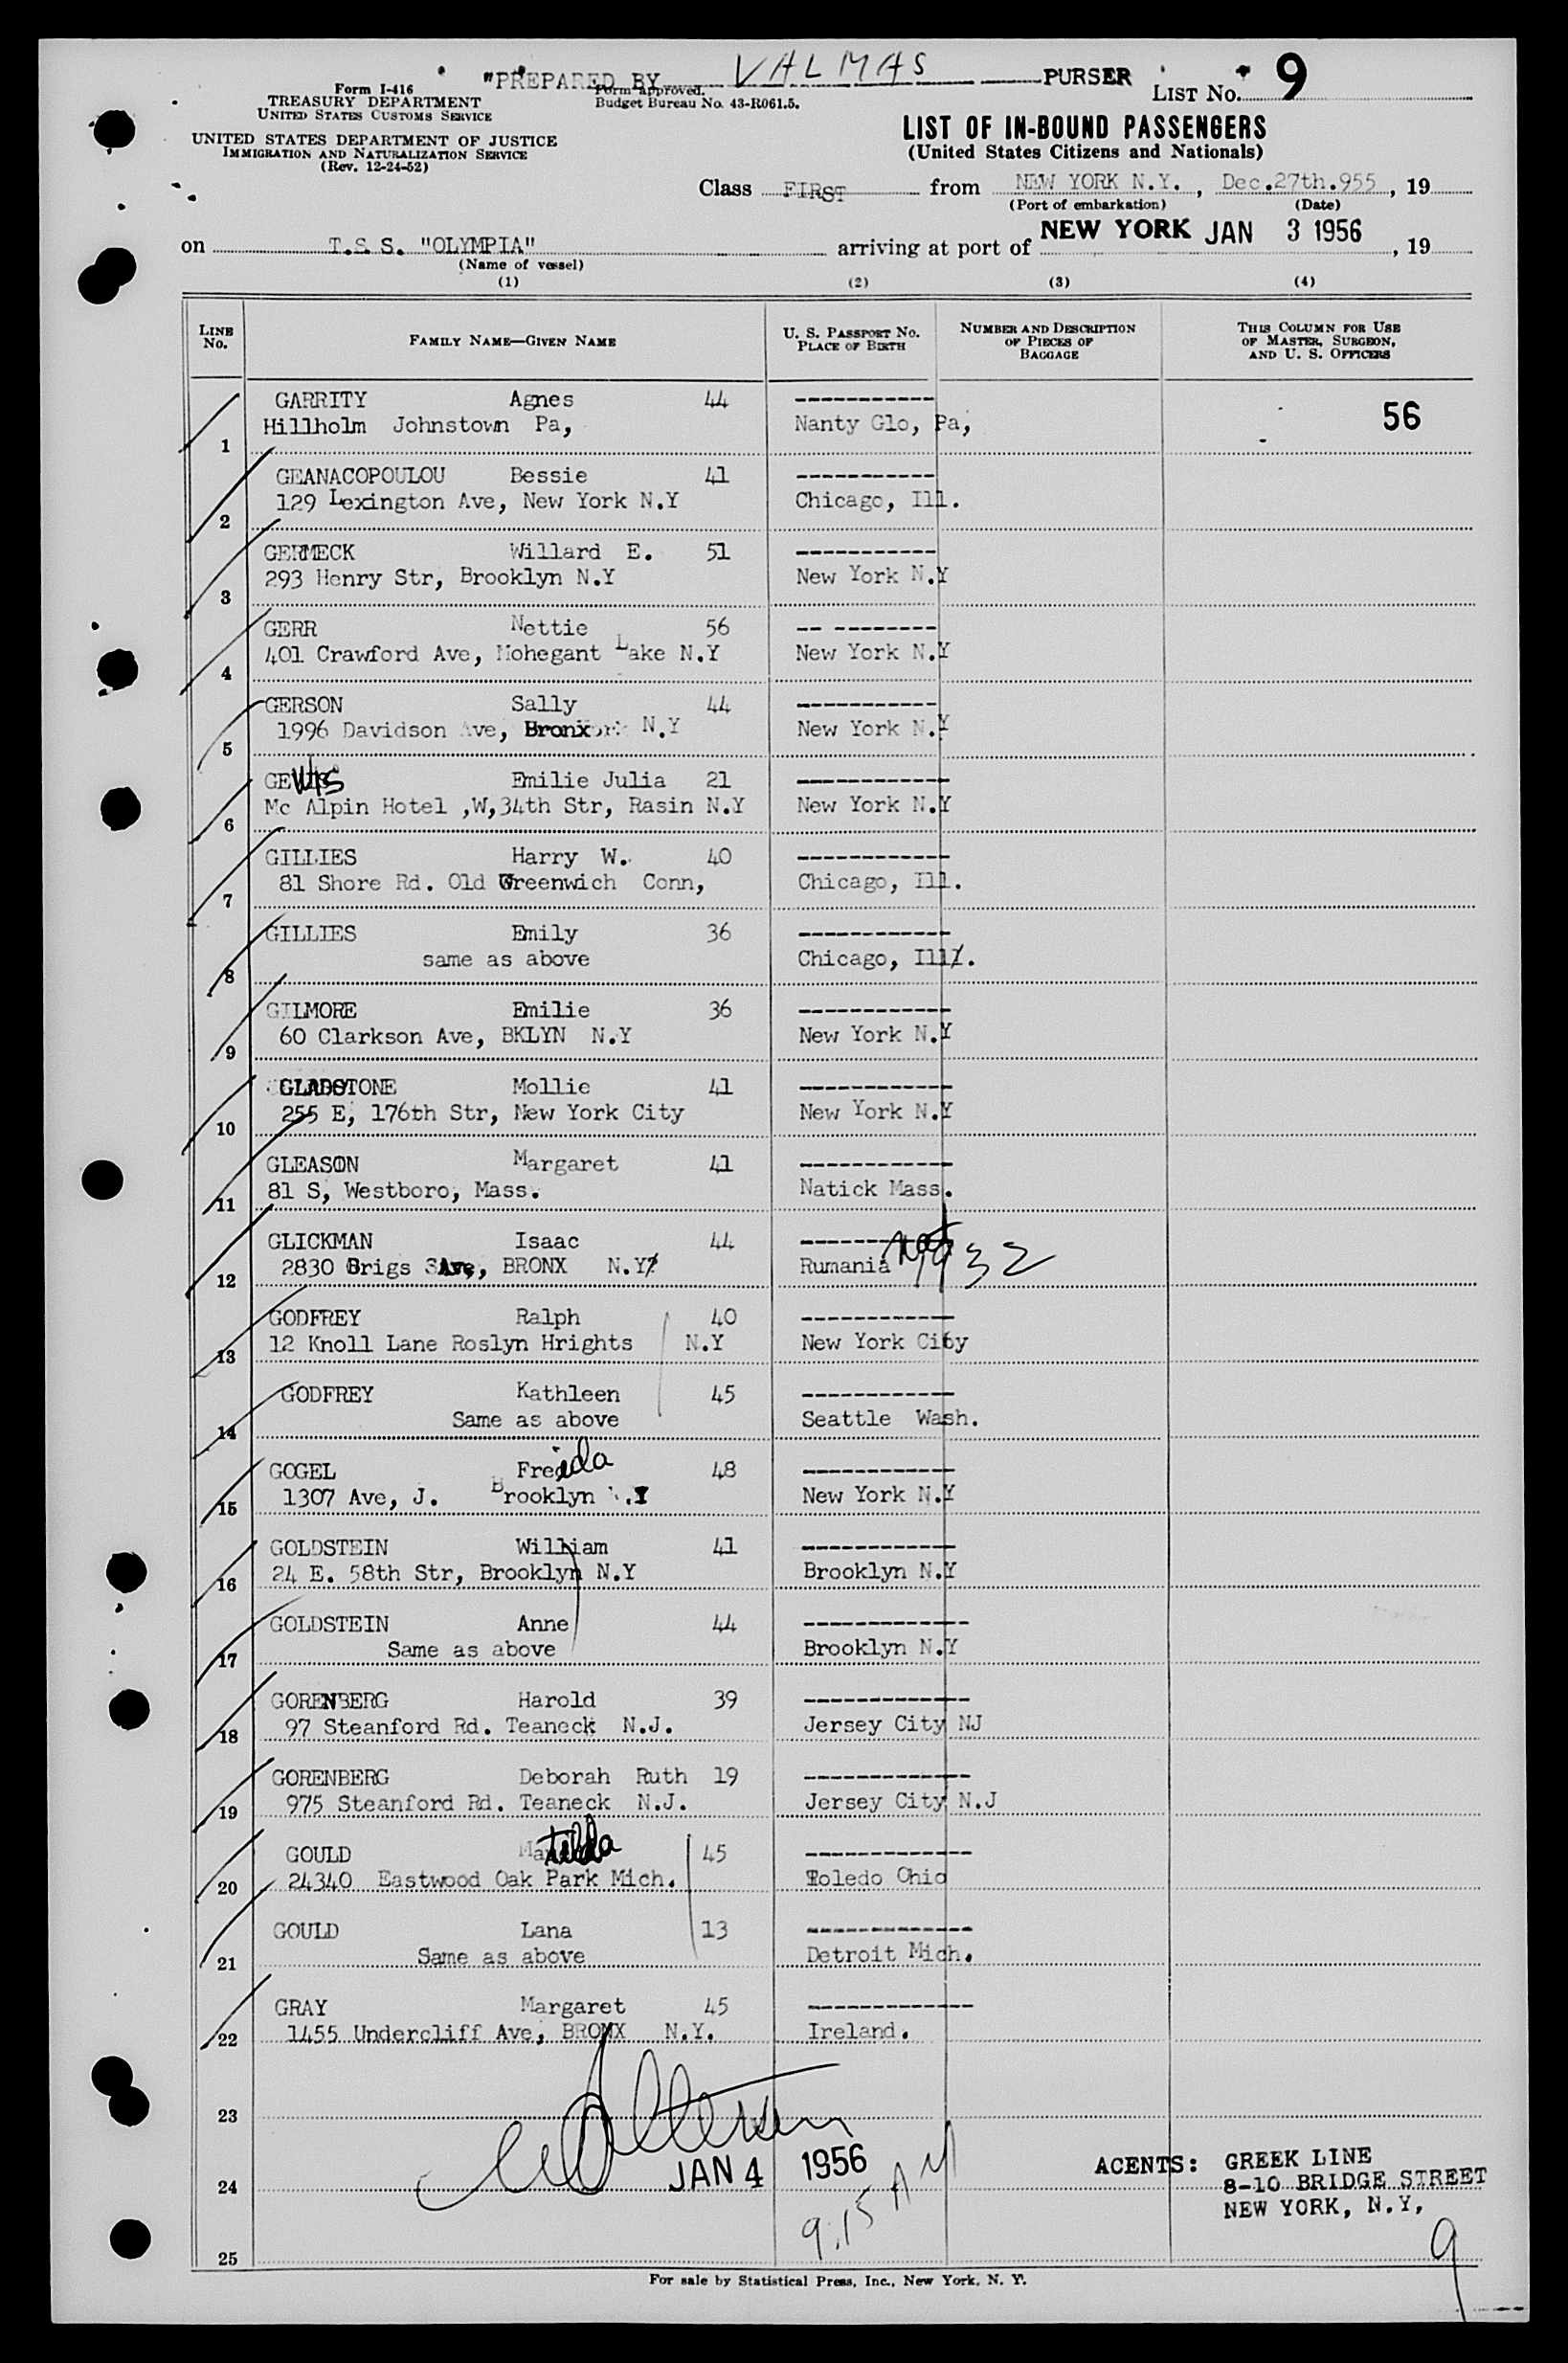 "PREPARED BY VALMAS PURSER
Form I-416
TREASURY DEPARTMENT
UNITED STATES CUSTOMS SERVICE
Form approved.
Budget Bureau No. 43-R061.5.
LIST No. 9
UNITED STATES DEPARTMENT OF JUSTICE
IMMIGRATION AND NATURALIZATION SERVICE
(Rev. 12-24-52)
LIST OF IN-BOUND PASSENGERS
(United States Citizens and Nationals)
Class FIRST from NEW YORK N.Y. , Dec.27th.955 , 19
(Port of embarkation) (Date)
on T.S.S. "OLYMPIA" arriving at port of NEW YORK JAN 3 1956 , 19
(Name of vessel)
(1) (2) (3) (4)
LINE No. FAMILY NAME—GIVEN NAME U. S. PASSPORT No. PLACE OF BIRTH NUMBER AND DESCRIPTION OF PIECES OF BAGGAGE THIS COLUMN FOR USE OF MASTER, SURGEON, AND U. S. OFFICERS
GARRITY Agnes 44 -----------
1 Hillholm Johnstown Pa, Nanty Glo, Pa, 56
GEANACOPOULOU Bessie 41 -----------
2 129 Lexington Ave, New York N.Y Chicago, Ill.
GERMECK Willard E. 51 -----------
3 293 Henry Str, Brooklyn N.Y New York N.Y
GERR Nettie 56 -- --------
4 401 Crawford Ave, Mohegant Lake N.Y New York N.Y
GERSON Sally 44 -----------
5 1996 Davidson Ave, Bronx N.Y New York N.Y
Emilie Julia 21 ------------
6 Mc Alpin Hotel ,W,34th Str, Rasin N.Y New York N.Y
GILLIES Harry W. 40 ------------
7 81 Shore Rd. Old Greenwich Conn, Chicago, Ill.
GILLIES Emily 36 ------------
8 same as above Chicago, Ill.
GILMORE Emilie 36 ------------
9 60 Clarkson Ave, BKLYN N.Y New York N.Y
GLADSTONE Mollie 41 ------------
10 255 E, 176th Str, New York City New York N.Y
GLEASON Margaret 41 ------------
11 81 S, Westboro, Mass. Natick Mass.
GLICKMAN Isaac 44 ------------
12 2830 Brigs Ave, BRONX N.Y Rumania nat 1932
GODFREY Ralph 40 ------------
13 12 Knoll Lane Roslyn Hrights N.Y New York City
GODFREY Kathleen 45 ------------
14 Same as above Seattle Wash.
GOGEL Freida 48 ------------
15 1307 Ave, J. Brooklyn N.Y New York N.Y
GOLDSTEIN William 41 ------------
16 24 E. 58th Str, Brooklyn N.Y Brooklyn N.Y
GOLDSTEIN Anne 44 -------------
17 Same as above Brooklyn N.Y
GORENBERG Harold 39 -------------
18 97 Steanford Rd. Teaneck N.J. Jersey City NJ
GORENBERG Deborah Ruth 19 -------------
19 975 Steanford Rd. Teaneck N.J. Jersey City N.J
GOULD Matilda 45 -------------
20 24340 Eastwood Oak Park Mich. Toledo Ohio
GOULD Lana 13 -------------
21 Same as above Detroit Mich.
GRAY Margaret 45 -------------
22 1455 Undercliff Ave, BRONX N.Y. Ireland.
23
JAN 4 1956
AGENTS: GREEK LINE
24 8-10 BRIDGE STREET
NEW YORK, N.Y,
9.15 AM
25 9
For sale by Statistical Press, Inc., New York, N. Y.